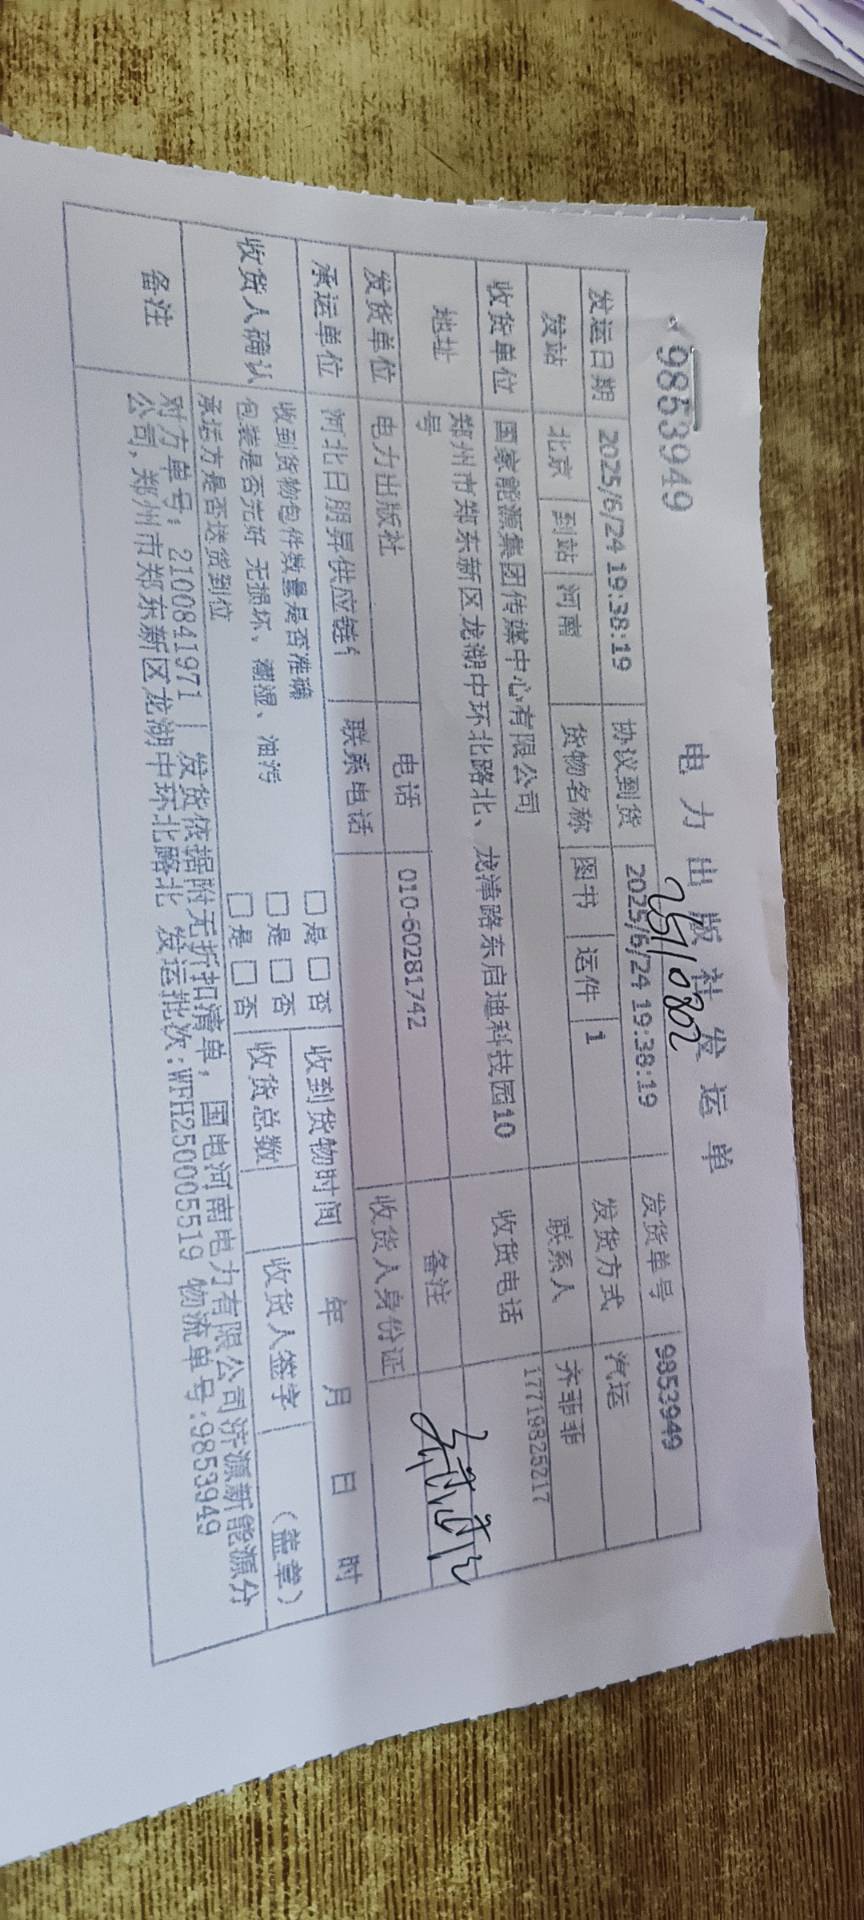 9853949
电力出版社发运单
25110802
发运日期 2025/6/24 19:38:19 协议到货 2025/6/24 19:38:19 发货单号 9853949
发站 北京 到站 河南 货物名称 图书 运件 1 发货方式 汽运
收货单位 国家能源集团传媒中心有限公司 联系人 齐菲菲
地址 郑州市郑东新区龙湖中环北路北、龙津路东启迪科技园10
号 收货电话 17719825217
发货单位 电力出版社 电话 010-60281742 备注
承运单位 河北日朋昇供应链 联系电话 收货人身份证
收货人确认 收到货物包件数量是否准确 □是□否 收到货物时间 年 月 日 时
包装是否完好 无损坏、潮湿、油污 □是□否 收货总数 收货人签字 (盖章)
承运方是否送货到位 □是□否
备注 对方单号：2100841971 | 发货依据附无折扣清单，国电河南电力有限公司济源新能源分
公司，郑州市郑东新区龙湖中环北路北 发运批次:WFH250005519 物流单号:9853949